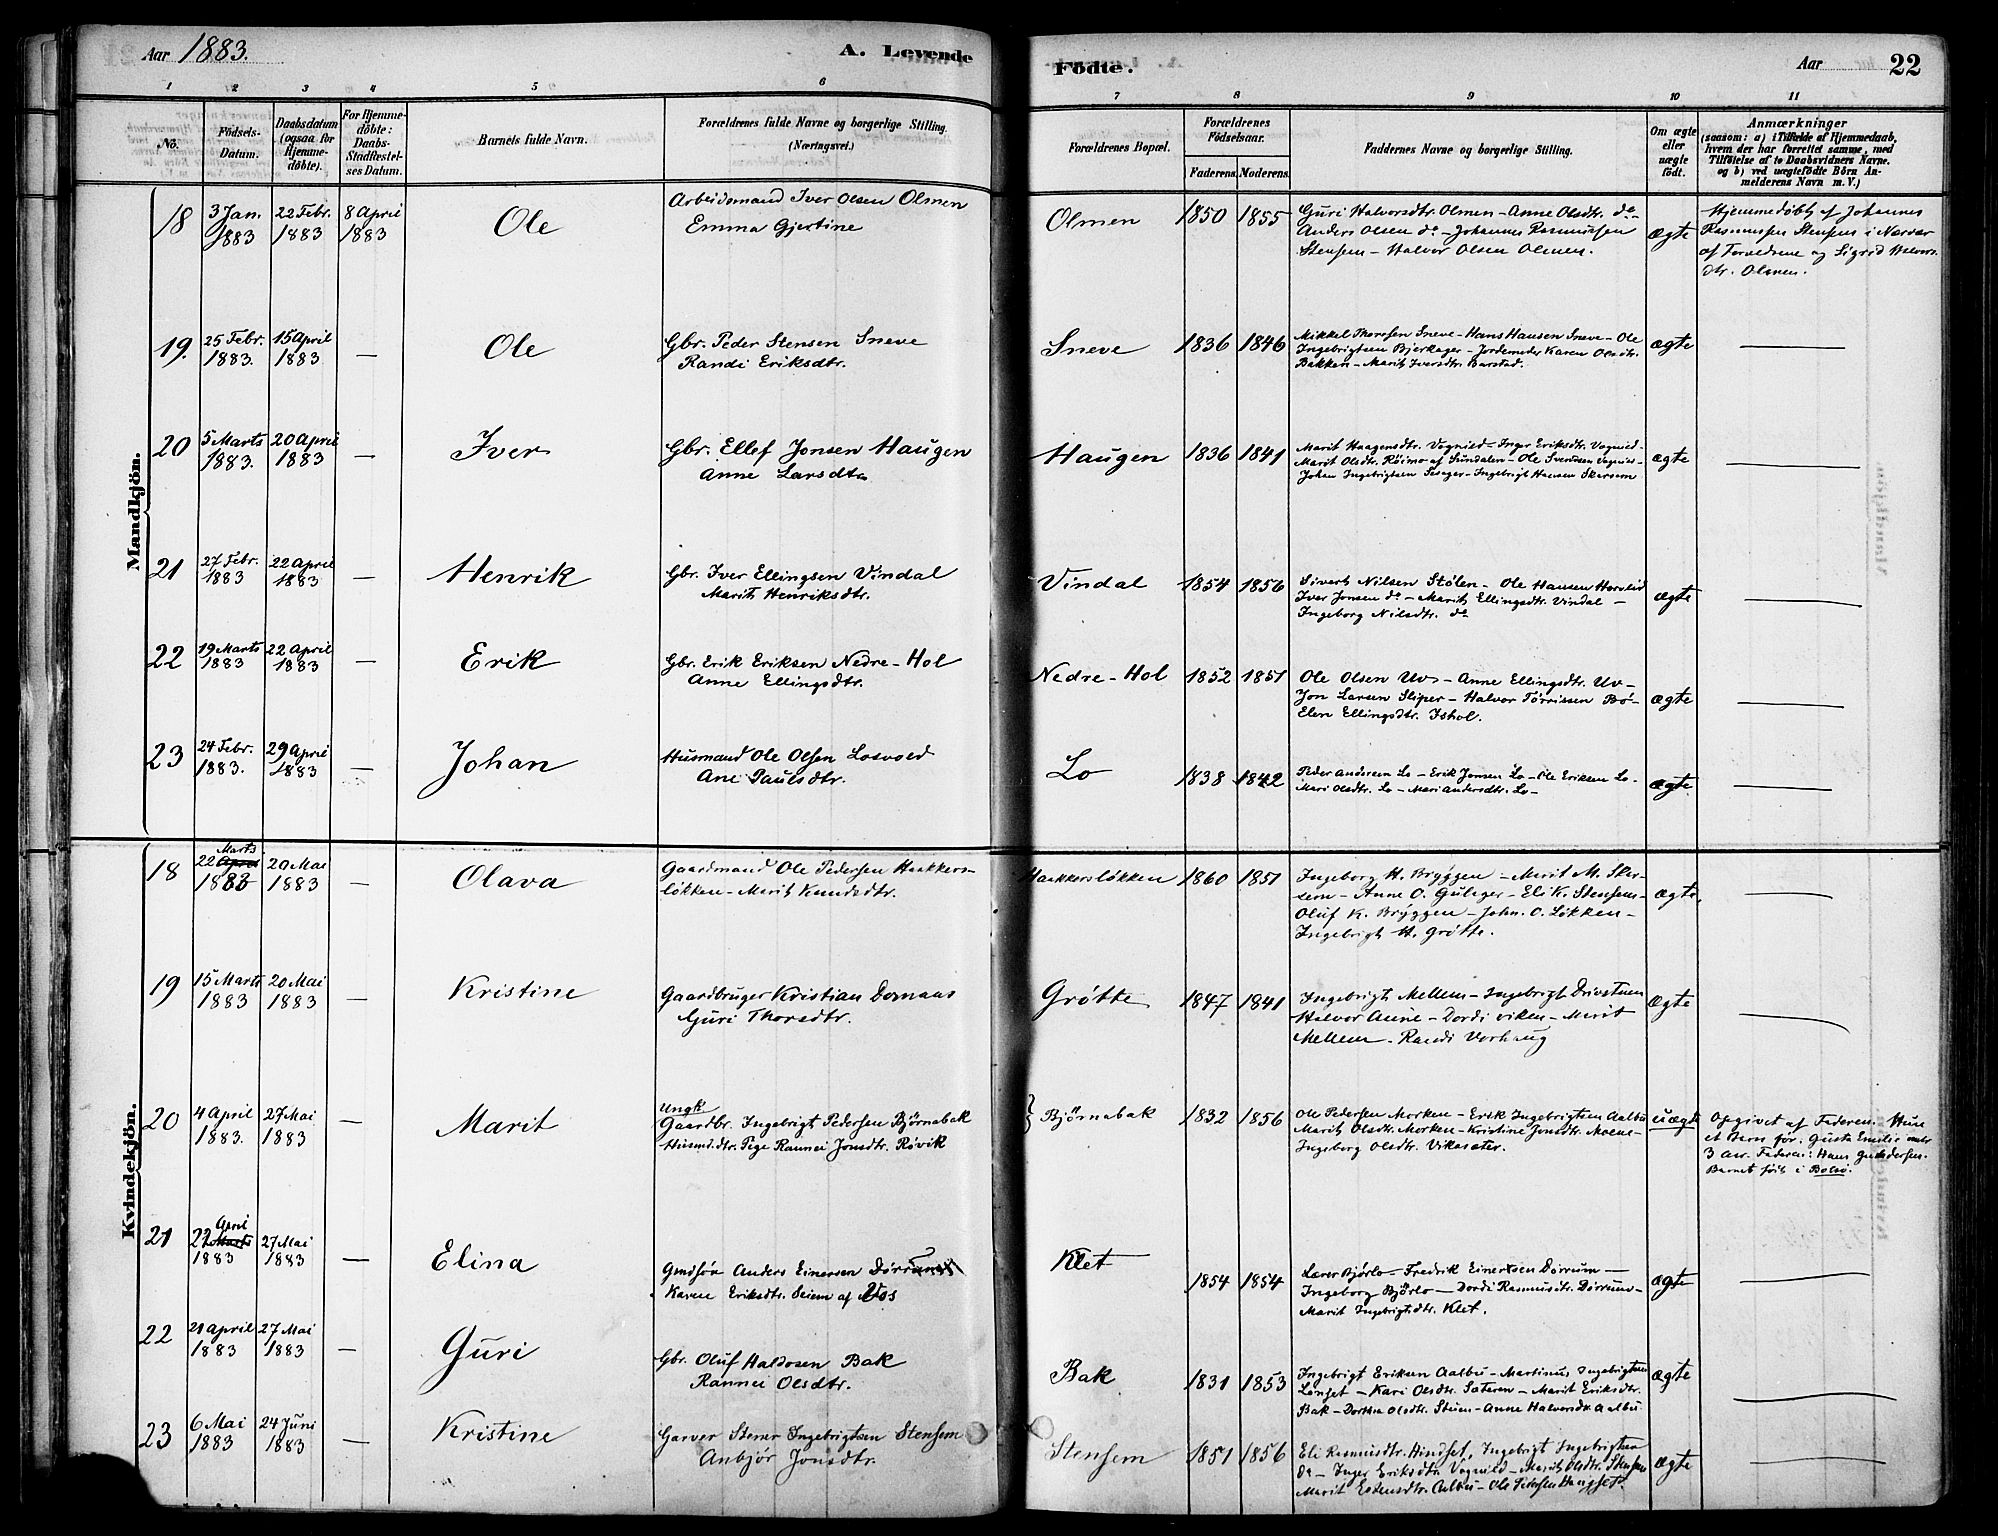 Aar 1883.
A. Levende
Födte.
Aar
22
1 2 3 4 5 6 7 8 9 10 11
No.
Födsels-Datum.
Daabsdatum (ogsaa for Hjemmedöbte).
For Hjemmedöbte: Daabs-Stadfæstelses Datum.
Barnets fulde Navn.
Forældrenes fulde Navne og borgerlige Stilling. (Næringsvei.)
Forældrenes Bopæl.
Forældrenes Födselsaar.
Faderens. Moderens.
Faddernes Navne og borgerlige Stilling.
Om ægte eller uægte født.
Anmærkninger
(saasom: a) i Tilfælde af Hjemmedaab, hvem der har forrettet samme, med Tilföielse af to Daabsvidners Navne. og b) ved uægtefödte Börn Anmelderens Navn m. V.)
Mandkjön.
18 3 Jan. 1883 22 Febr. 1883 8 April 1883 Ole
Arbeidsmand Iver Olsen Olmen
Emma Gjertine
Olmen 1850 1855
Guri Halvorsdtr. Olmen - Anne Olsdtr. do
Anders Olsen do - Johannes Rasmussen
Stensem - Halvor Olsen Olmen.
ægte
Hjemmedøbt af Johannes
Rasmussen Stensem i Nærvær
af Forældrene og Sigrid Halvors
dtr. Olmen.
19. 25 Febr. 1883. 15 April 1883 — Ole
Gbr. Peder Stensen Sneve
Randi Eriksdtr.
Sneve 1836 1846
Mikkel Thoresen Sneve - Hans Hansen Sneve - Ole
Ingebrigtsen Bjerkager - Jordemoder Karen Olsdtr.
Bakken - Marit Iversdtr. Barstad.
ægte —
20 5 Marts 1883. 20 April 1883 — Iver
Gbr. Ellef Jonsen Haugen
Anne Larsdtr
Haugen 1836 1841
Marit Haagensdtr. Vognild - Inger Eriksdtr. Vognild -
Marit Olsdtr. Röimo af Sundalen - Ole Svendsen Vognild -
Johan Ingebrigtsen Sesager - Ingebrigt Hansen Skarsem
ægte —
21 27 Febr. 1883 22 April 1883 — Henrik
Gbr. Iver Ellingsen Vindal
Marit Henriksdtr.
Vindal 1854 1856
Sivert Nilsen Stølen - Ole Hansen Horvlid
Iver Jonsen do - Marit Ellingsdtr. Vindal -
Ingeborg Nilsdtr. do
ægte —
22 19 Marts 1883 22 April 1883 — Erik
Gbr. Erik Eriksen Nedre-Hol
Anne Ellingsdtr.
Nedre-Hol 1852 1851
Ole Olsen Uv - Anne Ellingsdtr. Uv -
Jon Larsen Sliper - Halvor Törrissen Bö -
Elen Ellingsdtr. Ishol.
ægte —
23 24 Febr. 1883. 29 April 1883 — Johan
Husmand Ole Olsen Losvold
Ane Paulsdtr.
Lo 1838 1842
Peder Andersen Lo - Erik Jonsen Lo - Ole Eriksen Lo -
Mari Olsdtr. Lo - Mari Andersdtr. Lo -
ægte —
Kvindekjön.
18 22 Marts 1883 20 Mai 1883 — Olava
Gaardmand Ole Pedersen Haakkers-
løkken - Marit Knudsdtr.
Haakkersløkken 1860 1851
Ingeborg H. Bryggen - Marit M. Skar-
sem - Anne O. Gulager - Eli K. Stensem -
Oluf K. Bryggen - John. O. Løkken -
Ingebrigt H. Grøtte.
ægte. —
19 15 Marts 1883 20 Mai 1883 — Kristine
Gaardbruger Kristian Domaas
Guri Thorsdtr.
Grøtte 1847 1841
Ingebrigt Mellem - Ingebrigt Drivstuen
Halvor Aune - Dordi Viken - Marit
Mellem - Randi Vorhaug
ægte —
20 4 April 1883. 27 Mai 1883 — Marit
Ungk.
Gaardbr. Ingebrigt Pedersen Bjørnabak
Husmd.dtr. Pige Rannei Jonsdtr. Røvik
Bjørnabak 1832 1856
Ole Pedersen Morken - Erik Ingebrigtsen Aalbu
Marit Olsdtr. Morken - Kristine Jonsdtr. Moene -
Ingeborg Olsdtr. Viksæter.
uægte
Opgivet af Faderen. Hun
et Barn før: Gusta Emilie under
3 Aar. Fader: Hans Gundersen.
Barnet født i Bolsø.
21 22 April 1883 27 Mai 1883 — Elina
Gmdsøn Anders Einersen Dørrum
Karen Eriksdtr. Seiem af Vos
Klet 1854 1854
Lærer Bjørlo - Fredrik Einersen Dörrum -
Ingeborg Bjørlo - Dordi Rasmusdtr. Dörrum -
Marit Ingebrigtsdtr. Klet.
ægte —
22 21 April 1883 27 Mai 1883 — Guri
Gbr. Oluf Haldosen Bak
Rannei Olsdtr.
Bak 1831 1853
Ingebrigt Eriksen Aalbu - Martinus Ingebrigtsen
Lønset - Kari Olsdtr. Sateren - Marit Eriksdtr.
Bak - Dorthea Olsdtr. Stuen - Anne Halvorsdtr. Aalbu
ægte —
23 6 Mai 1883 24 Juni 1883 — Kristine
Garver Stener Ingebrigtsen Stensem
Anbjør Jonsdtr.
Stensem 1851 1856
Eli Rasmusdtr. Hindset, Ingebrigt Ingebrigtsen
do - Inger Eriksdtr. Vognild - Marit Olsdtr. Stensem
Marit Estensdtr. Aalbu - Ole Siversen Haugset.
ægte —